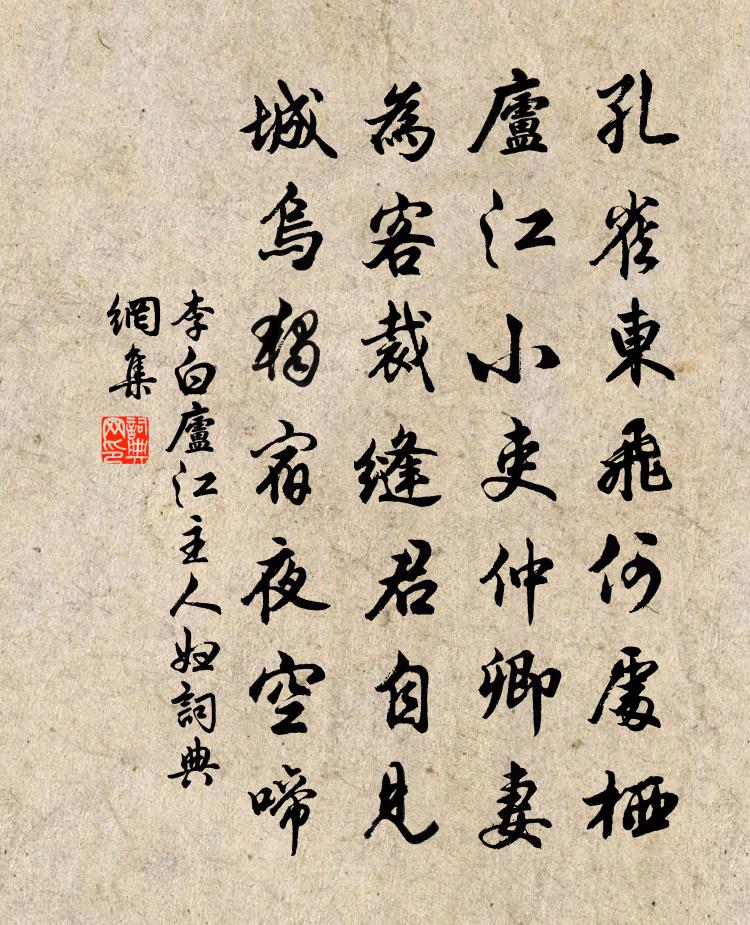 孔雀東飛何處栖
廬江小吏仲卿妻
為客裁縫君自見
城烏獨宿夜空啼
李白廬江主人婦詞典
網集
詞典
网印